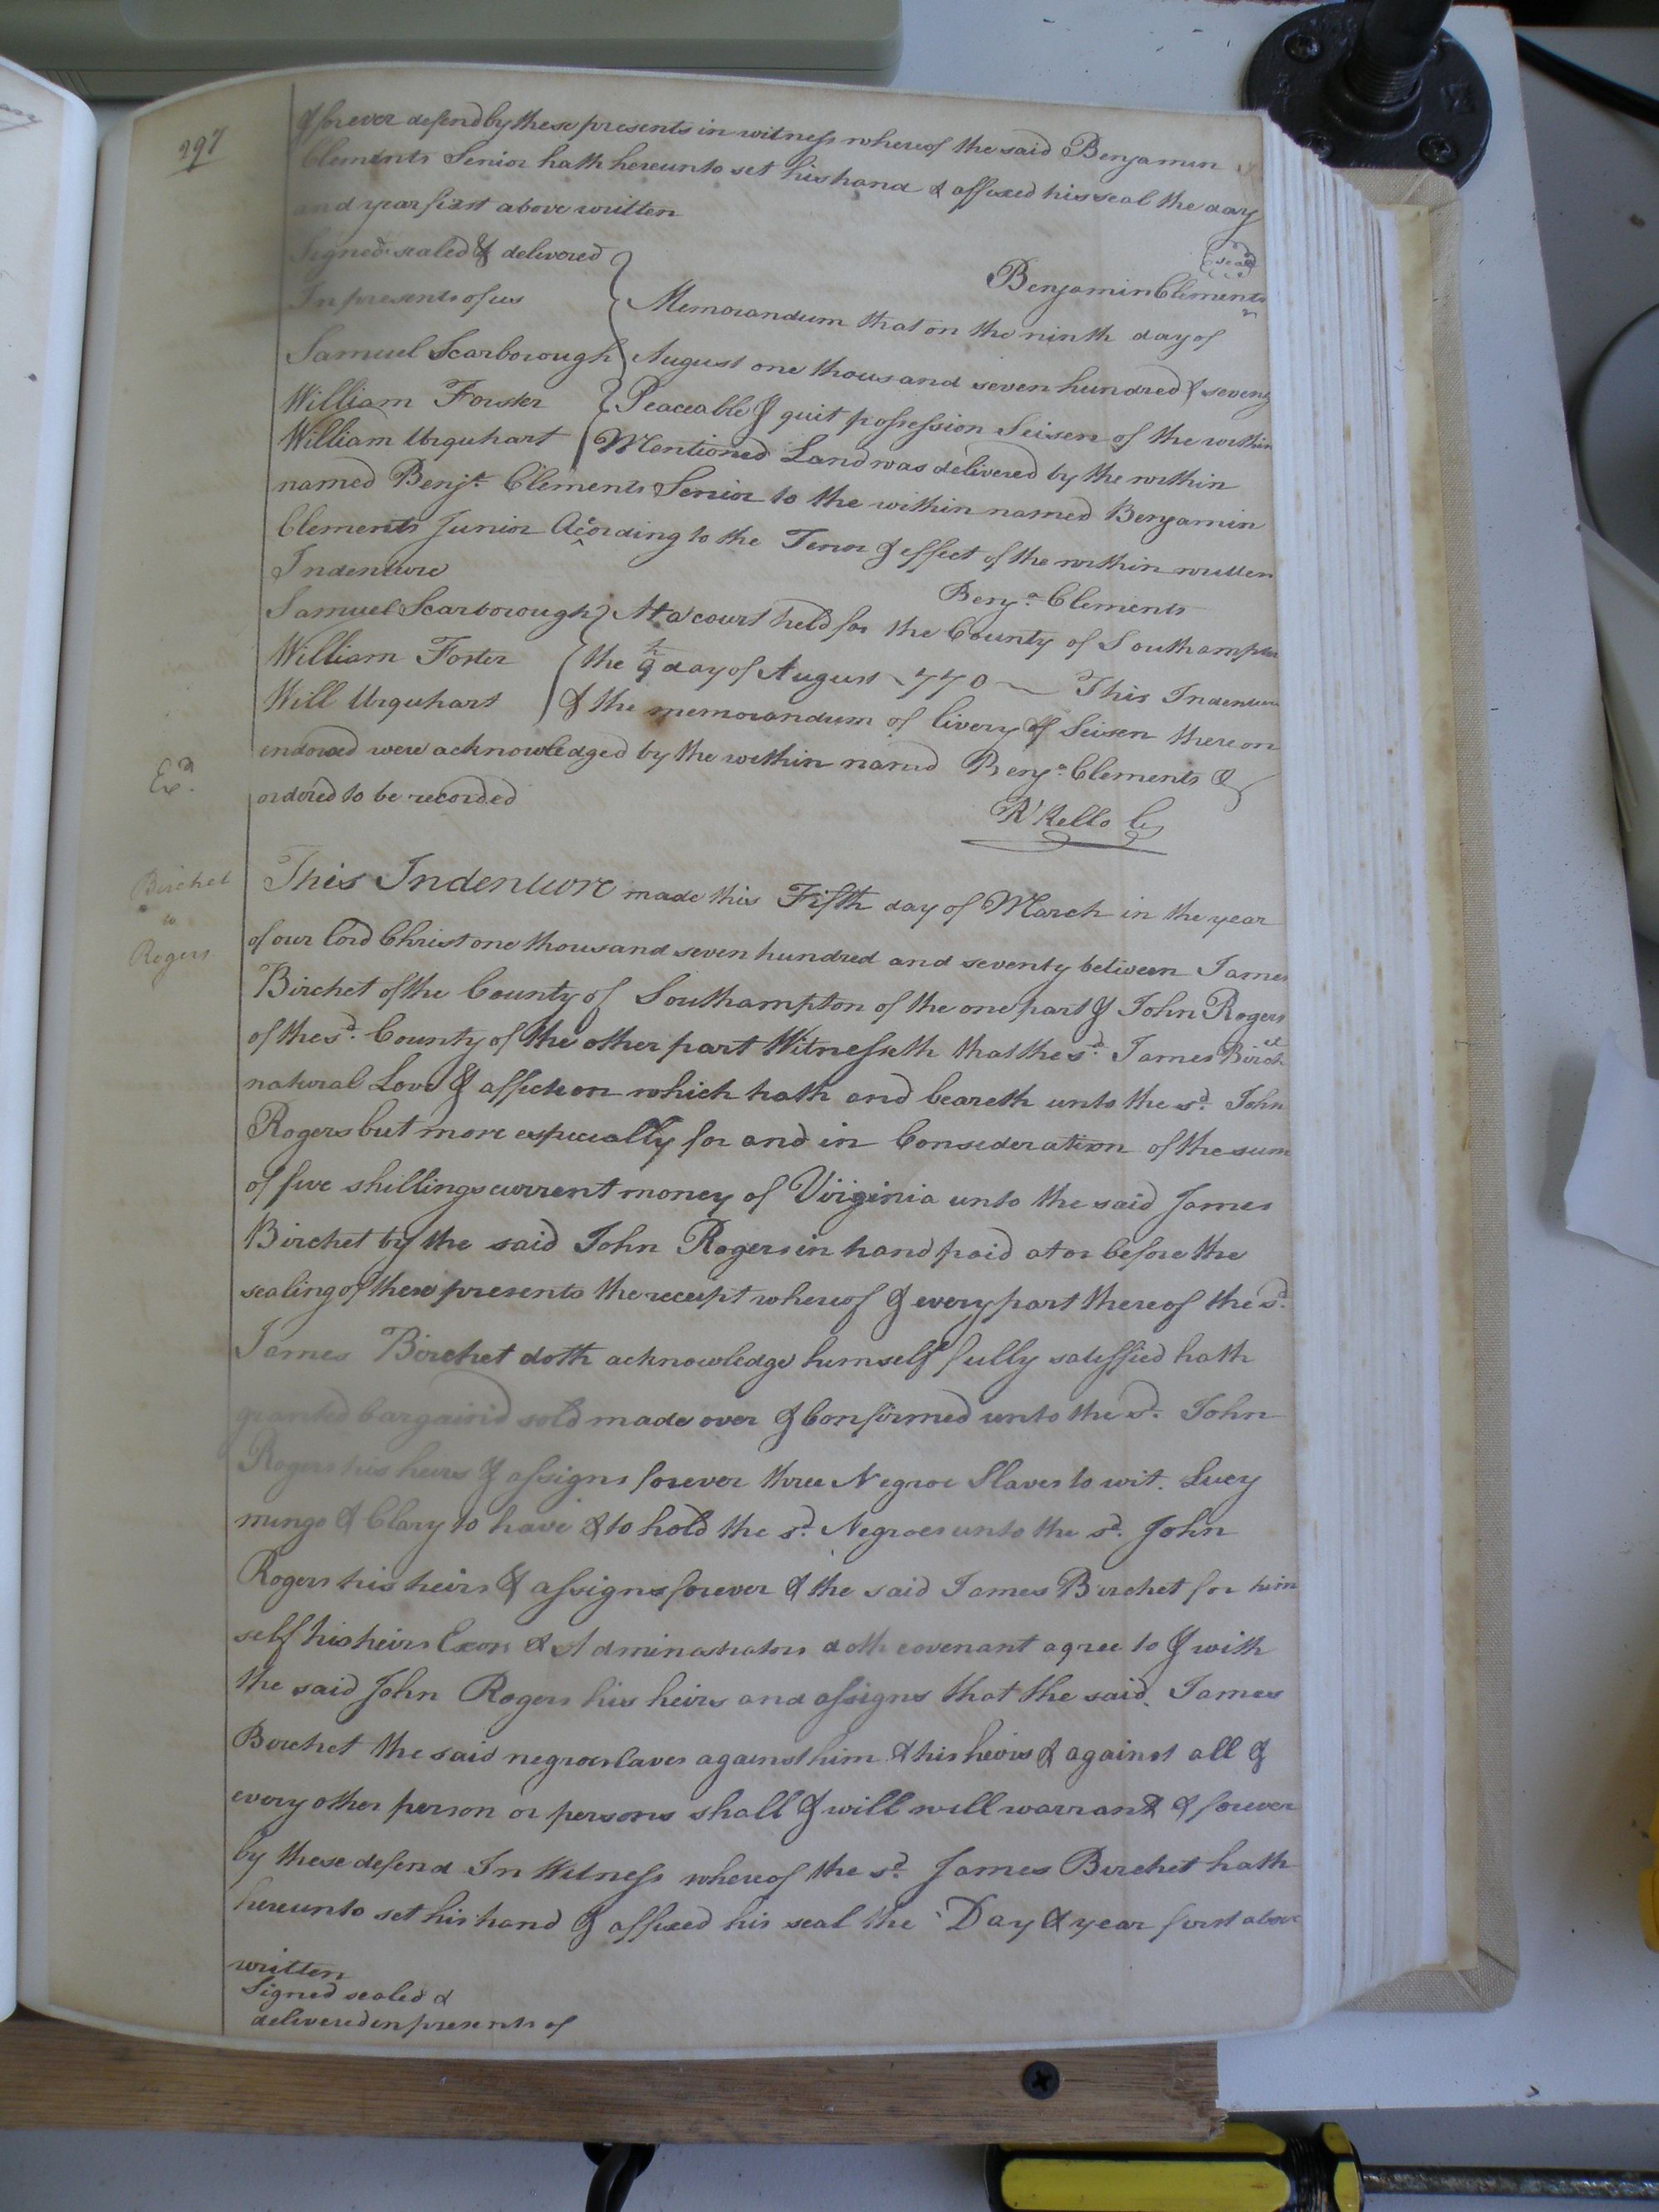 297
& forever defend by these presents in witness whereof the said Benjamin
Clements Senior hath hereunto set his hand & affixed his seal the day
and year first above written
Signed sealed & delivered
In presents of us
Samuel Scarborough
William Forster
William Urquhart
Benjamin Clements
seal
Memorandum that on the ninth day of
August one thousand seven hundred & seventy
Peaceable & quit possession Seisen of the within
Mentioned Land was delivered by the within
named Benjn. Clements Senior to the within named Benjamin
Clements Junior Acording to the Tenor & effect of the within written
Indenture
Benja. Clements
Samuel Scarborough
William Foster
Will Urquhart
At a court held for the County of Southampton
the 9th day of August 1770 This Indenture
& the memorandum of livery & Seisen thereon
endorsed were acknowledged by the within named Benja. Clements &
ordored to be recorded
Exd.
R'Kello
Birchet
to
Rogers
This Indenture made this Fifth day of March in the year
of our lord Christ one thousand seven hundred and seventy between James
Birchet of the County of Southampton of the one part & John Rogers
of the sd. County of the other part Witnesseth that the sd. James Birchet
natural Love & affection which hath and beareth unto the sd. John
Rogers but more especially for and in Consideration of the sum
of five shillings current money of Virginia unto the said James
Birchet by the said John Rogers in hand paid at or before the
sealing of these presents the receipt whereof & every part thereof the sd.
James Birchet doth acknowledge himself fully satisfied hath
granted bargain'd sold made over & Confirmed unto the sd. John
Rogers his heirs & assigns forever three Negroe Slaves to wit. Lucy
mingo & Clary to have & to hold the sd. Negroes unto the sd. John
Rogers his heirs & assigns forever & the said James Birchet for him
self his heirs Exors & Adminastrators doth covenant agree to & with
the said John Rogers his heirs and assigns that the said James
Birchet the said negroe slaves against him & his heirs & against all &
every other person or persons shall & will will warrant & forever
by these defend In Witness whereof the sd. James Birchet hath
hereunto set his hand & affixed his seal the Day & year first above
written
Signed sealed &
delivered in presents of